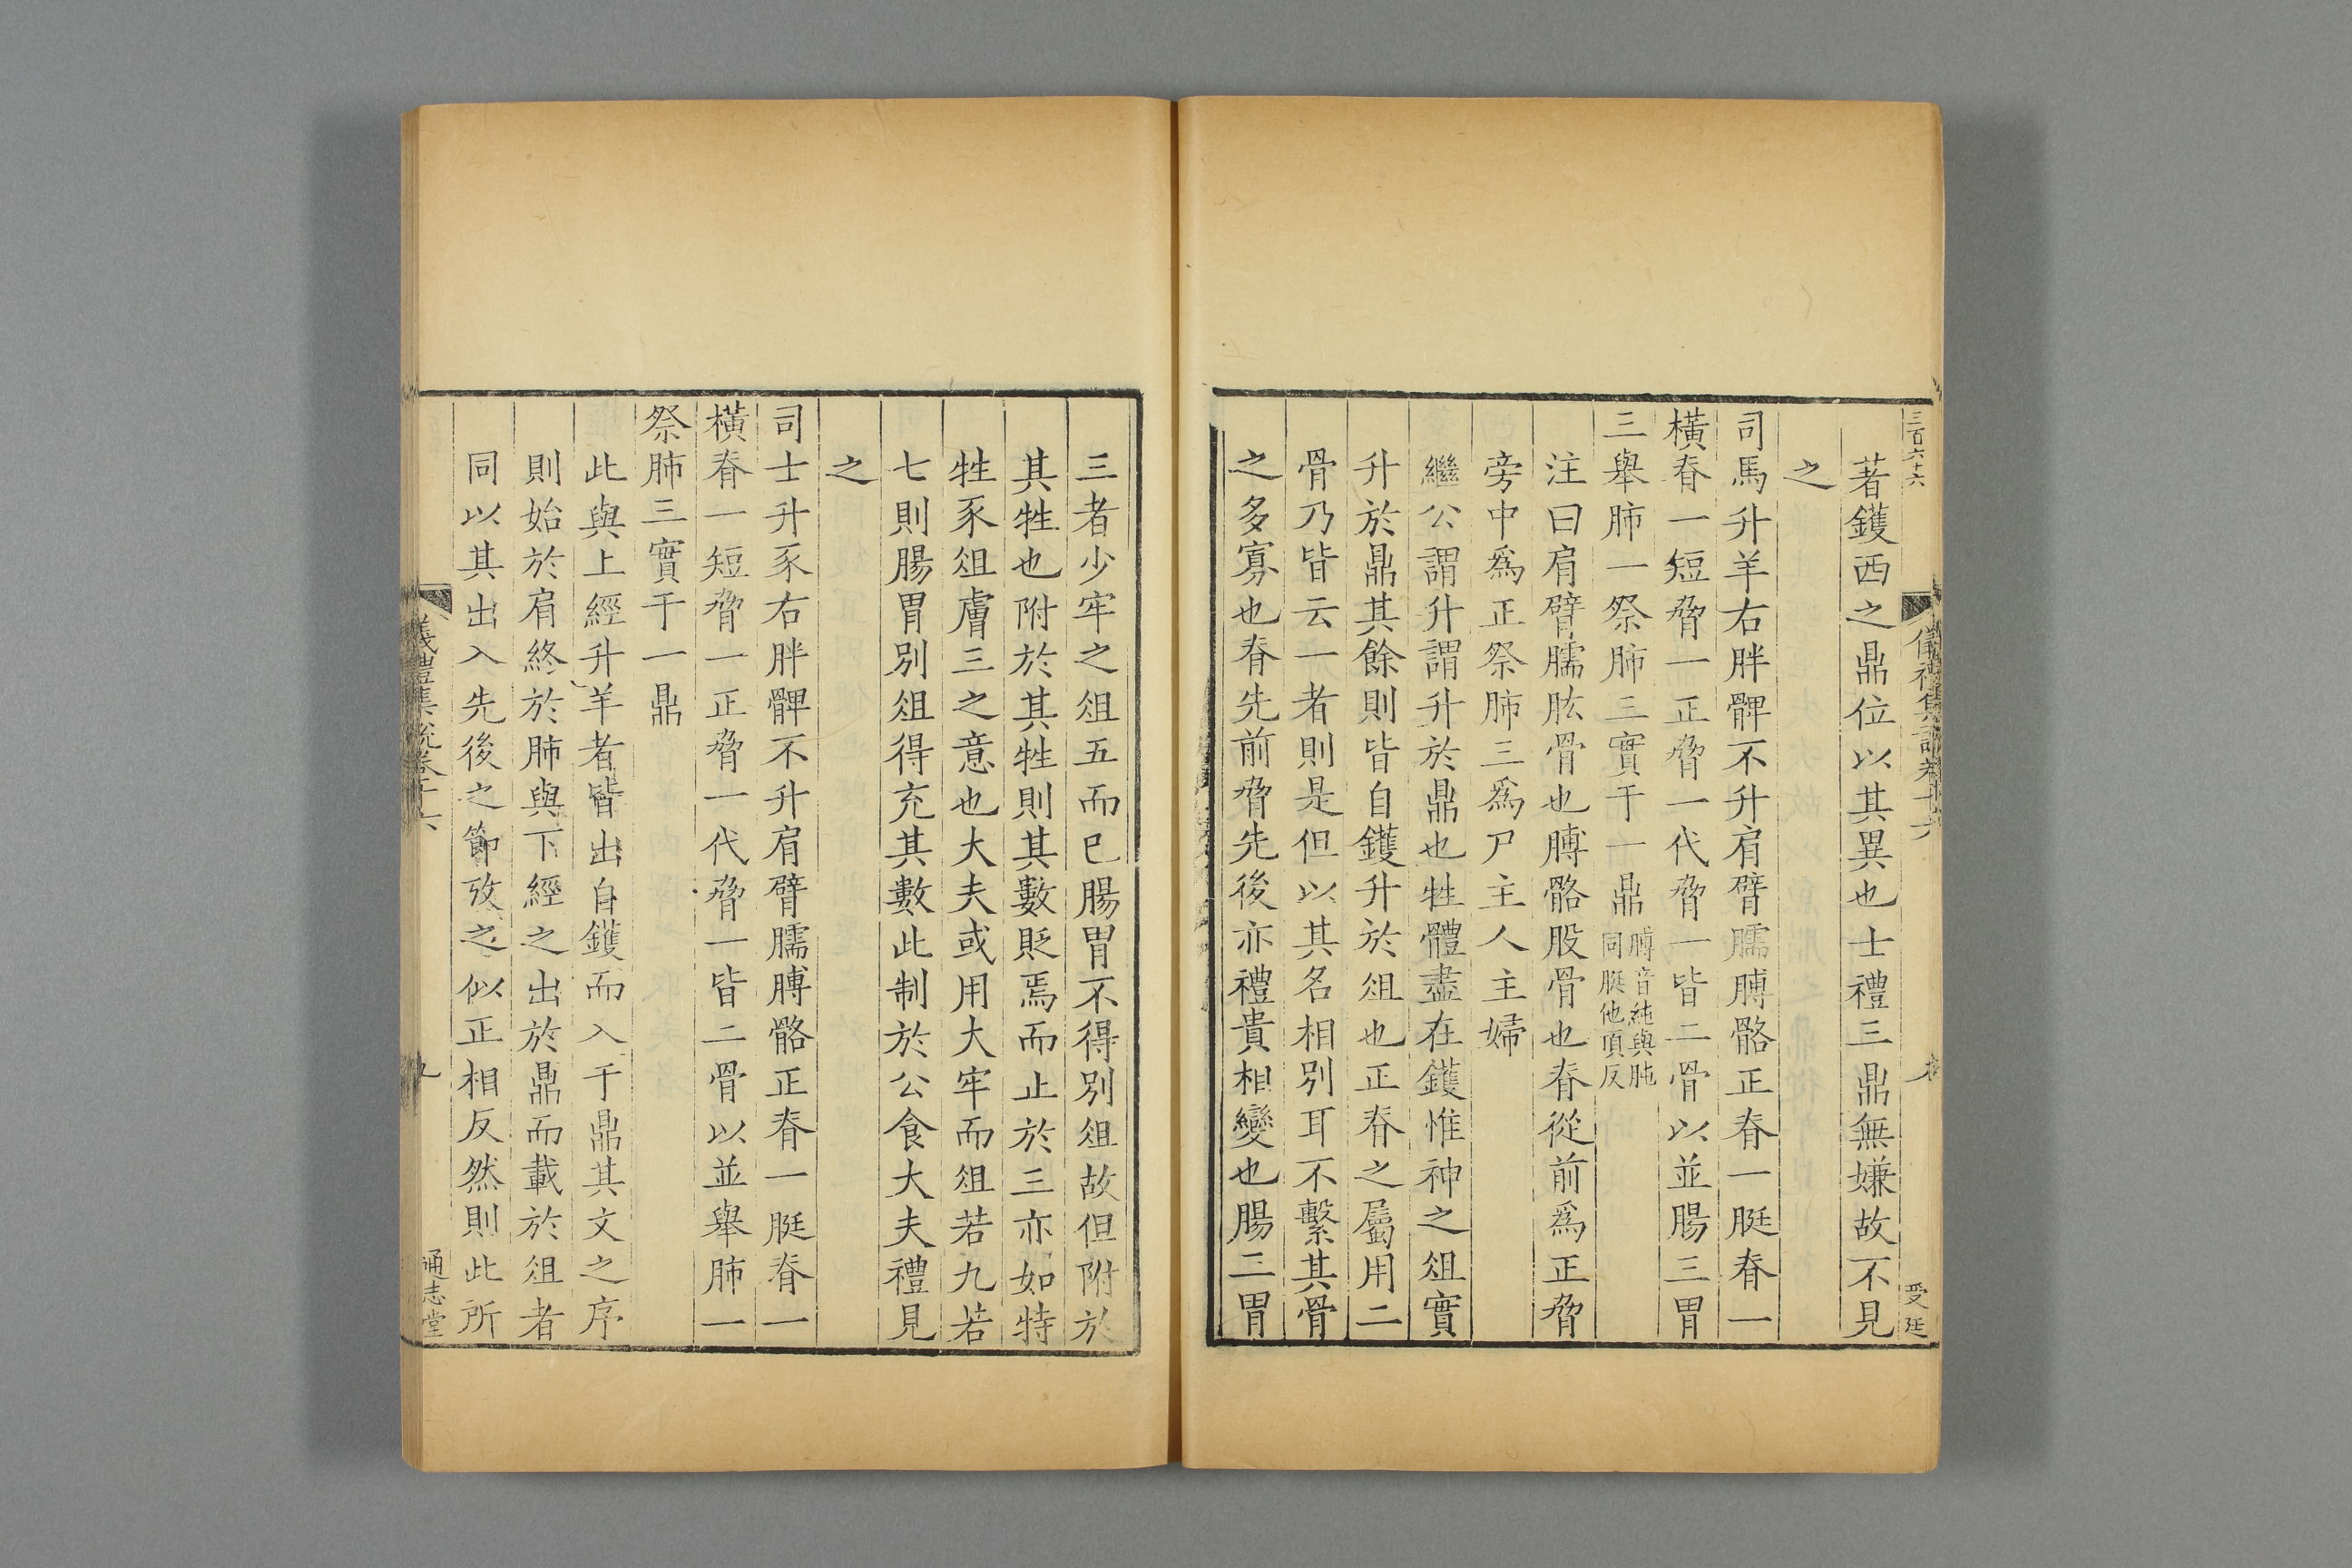 三百六十六
儀禮集說卷十六
受廷
著鑊西之鼎位以其異也士禮三鼎無嫌故不見
之
司馬升羊右胖髀不升肩臂臑膊骼正脊一脡脊一
橫脊一短脅一正脅一代脅一皆二骨以並腸三胃
三舉肺一祭肺三實于一鼎膊音純與肫同脡他頂反
注曰肩臂臑肱骨也膊骼股骨也脊從前爲正脅
旁中爲正祭肺三爲尸主人主婦
繼公謂升謂升於鼎也牲體盡在鑊惟神之俎實
升於鼎其餘則皆自鑊升於俎也正脊之屬用二
骨乃皆云一者則是但以其名相別耳不繫其骨
之多寡也脊先前脅先後亦禮貴相變也腸三胃
三者少牢之俎五而已腸胃不得別俎故但附於
其牲也附於其牲則其數貶焉而止於三亦如特
牲豕俎膚三之意也大夫或用大牢而俎若九若
七則腸胃別俎得充其數此制於公食大夫禮見
之
司士升豕右胖髀不升肩臂臑膊骼正脊一脡脊一
橫脊一短脅一正脅一代脅一皆二骨以並舉肺一
祭肺三實于一鼎
此與上經升羊者皆出自鑊而入于鼎其文之序
則始於肩終於肺與下經之出於鼎而載於俎者
同以其出入先後之節攷之似正相反然則此所
儀禮集說卷十六
九
通志堂